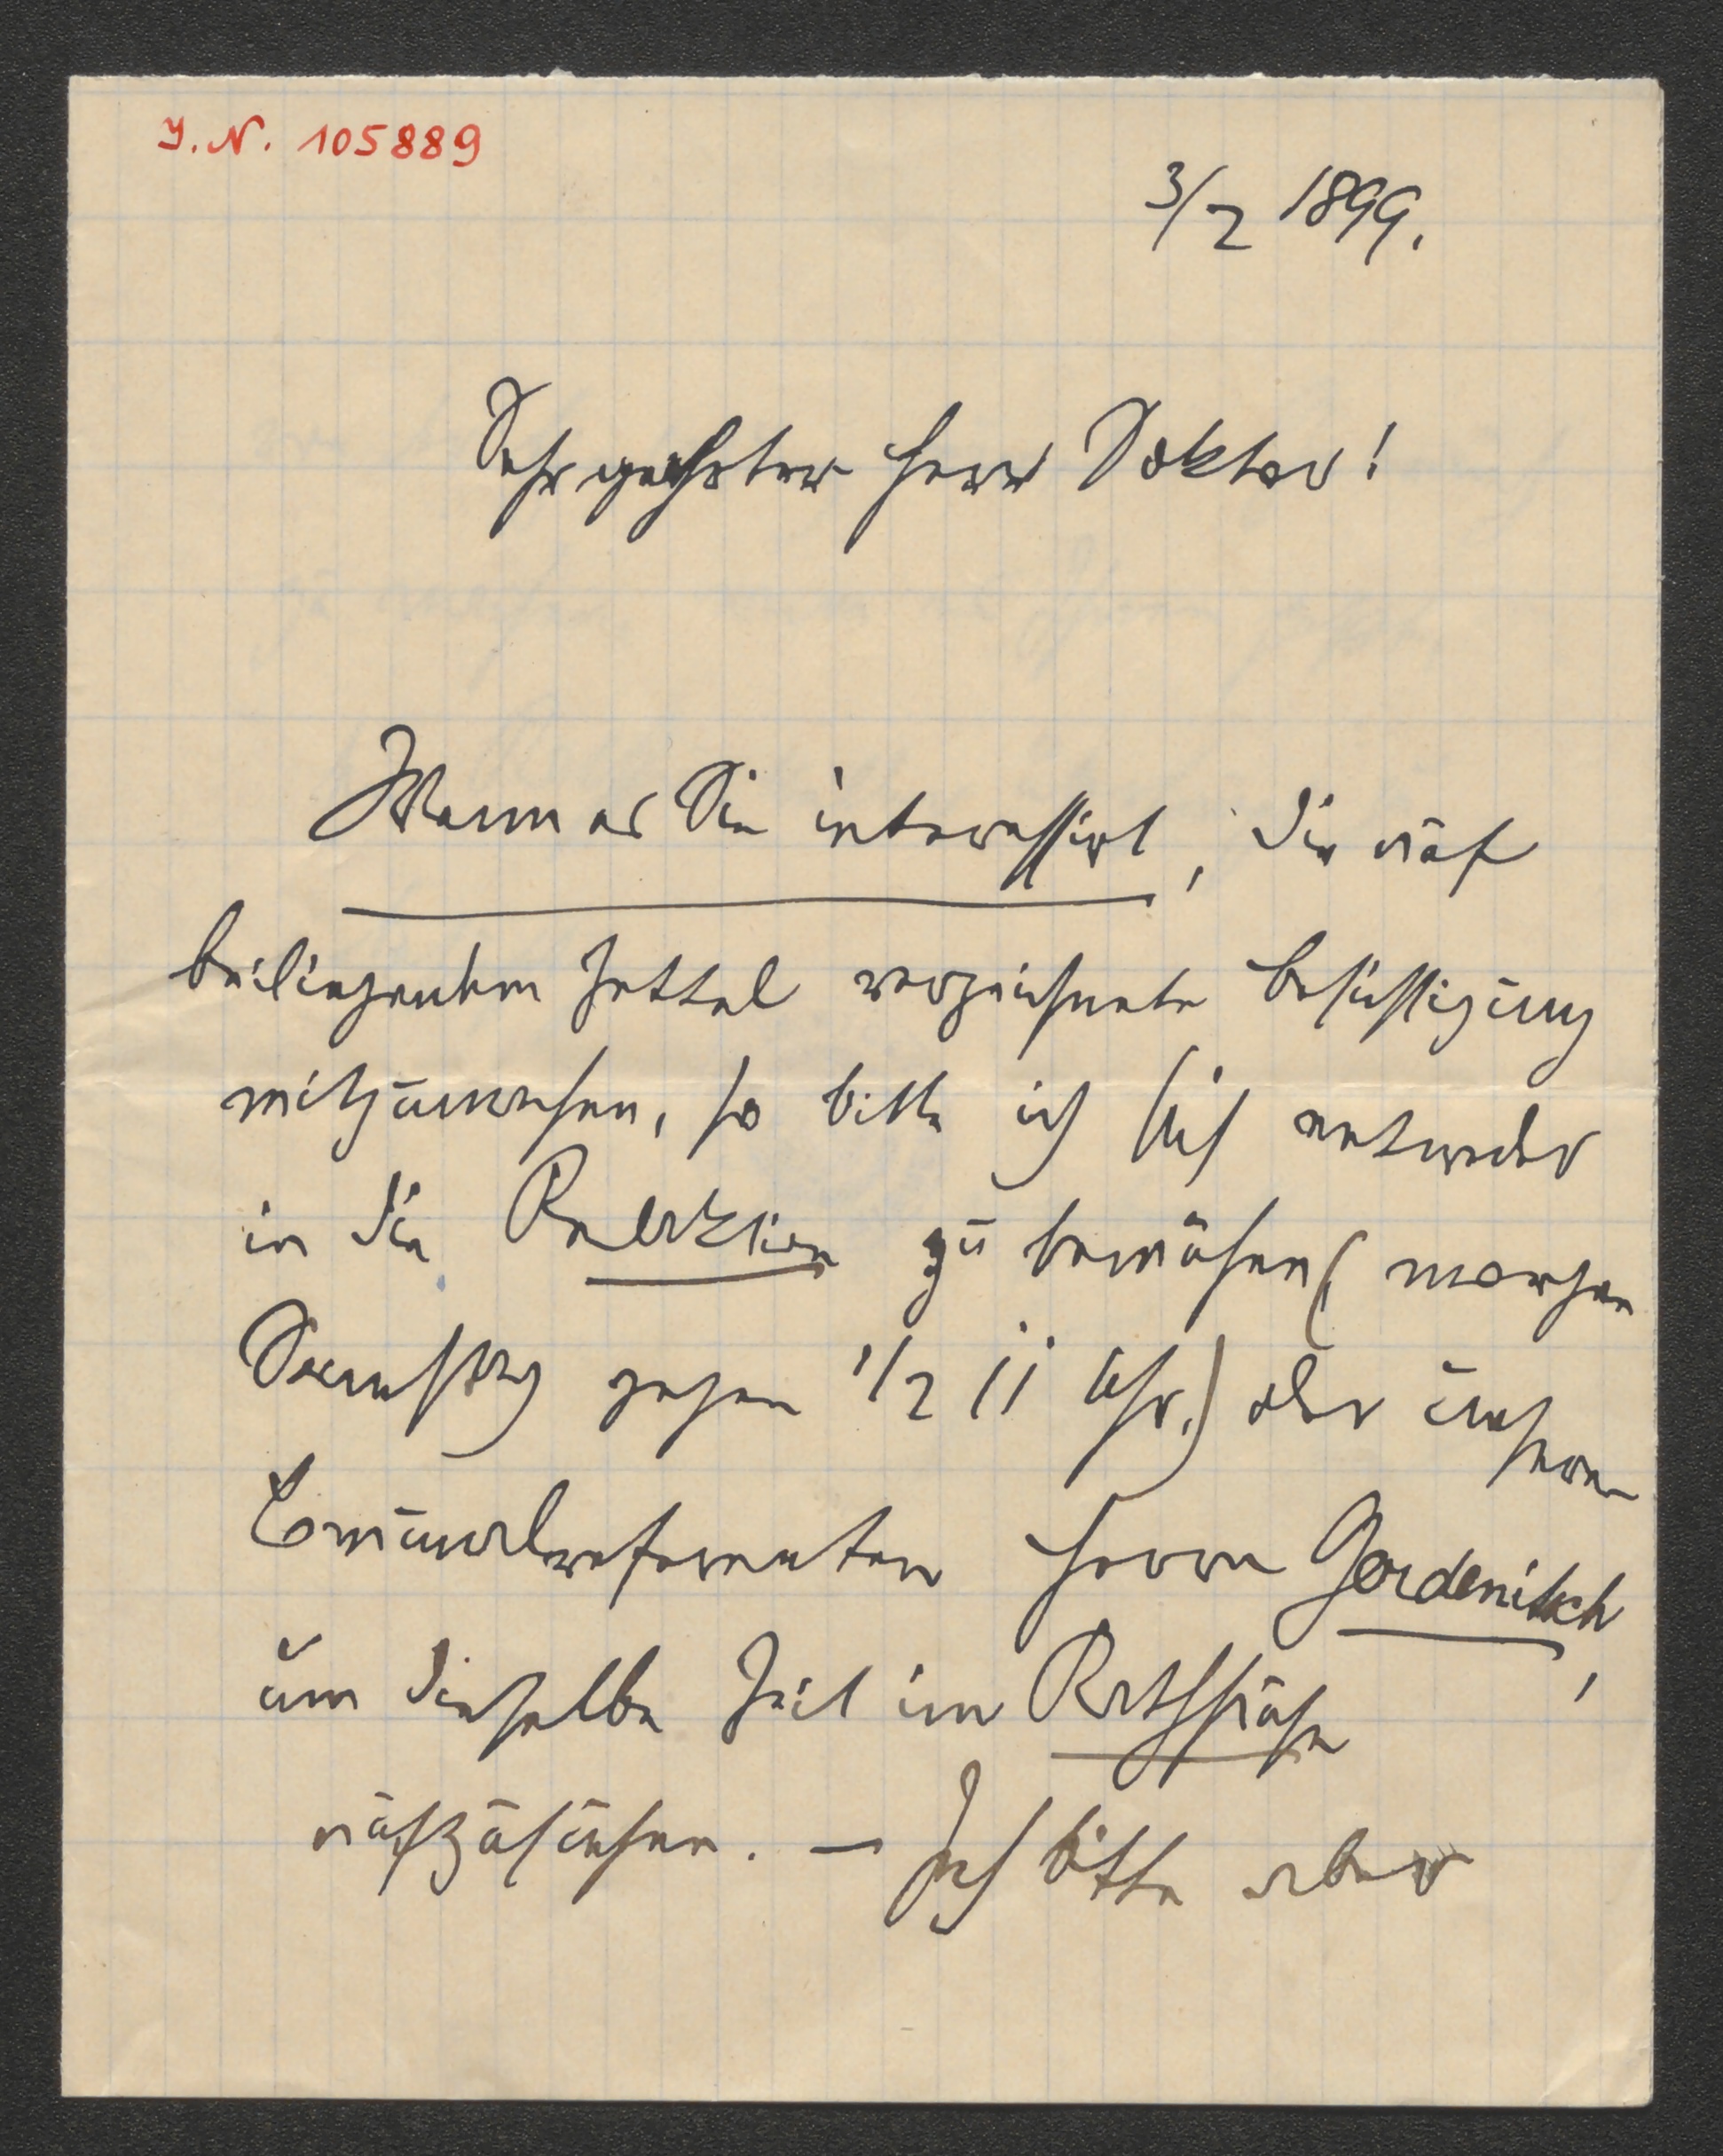 J.N. 105889
3/2 1899.
Sehr geehrter Herr Doktor!
Wenn es Sie interessirt, die auf
beiliegendem Zettel verzeichnete Besichtigung
mitzumachen, so bitte ich sich entweder
in die Redaktion zu bemühen (morgen
Samstag gegen 1/2 11 Uhr.) oder unseren
Communalreferenten Herrn Gordenitsch,
um dieselbe Zeit im Rathhause
aufzusuchen. – Ich bitte aber